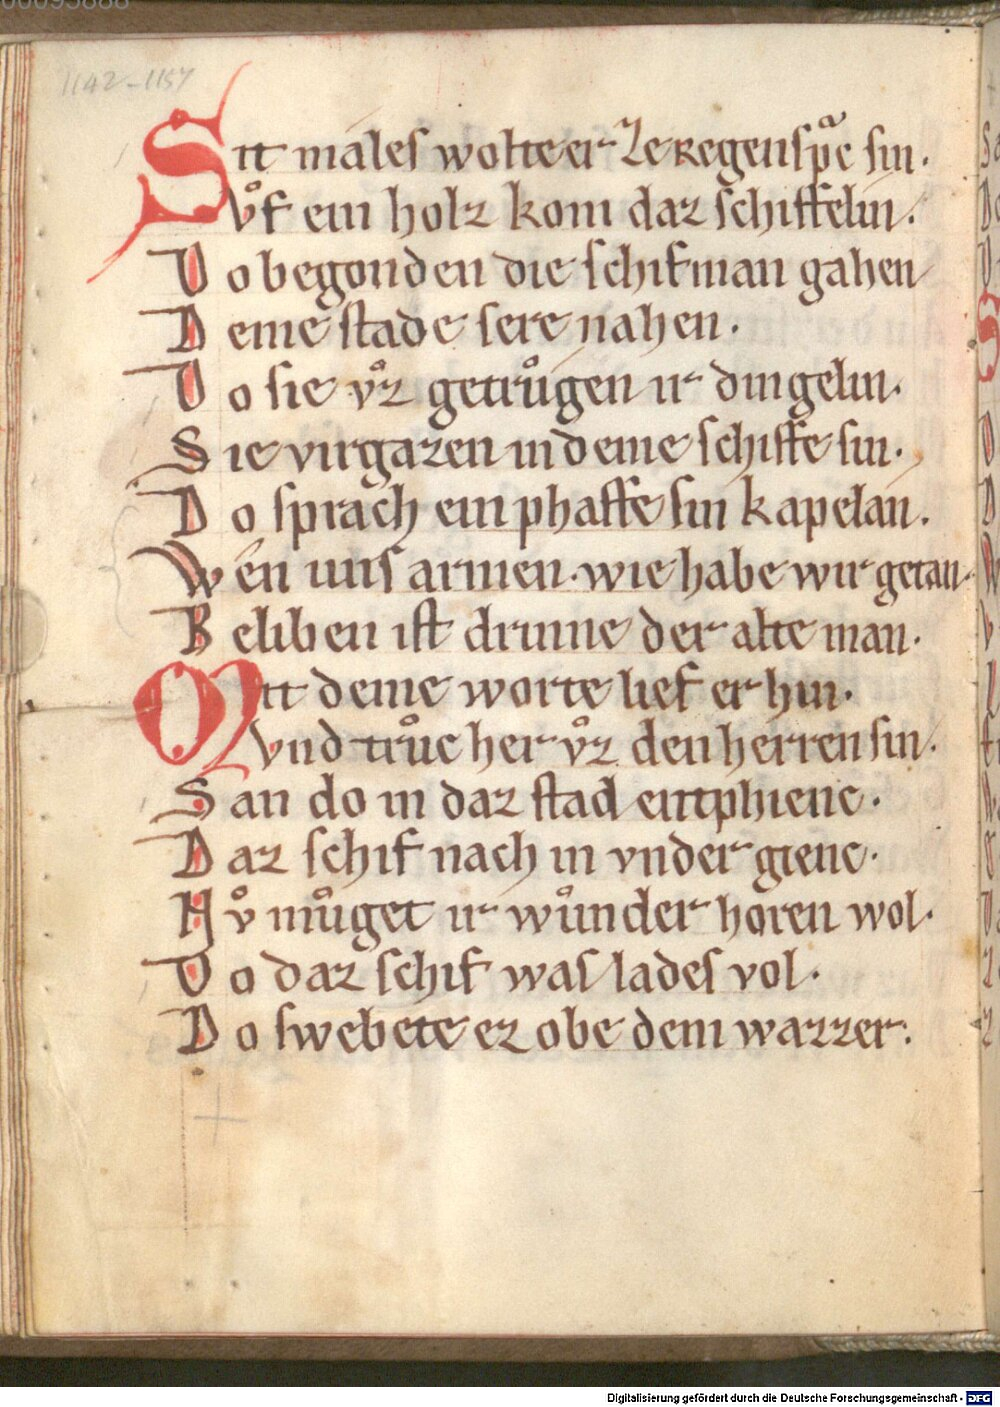 00095888
1142-1157
Sit males wolte er ze regenspͣc sin.
vͦf ein holz kom daz schiffelin.
Do begonden die schifman gahen
Deme stade sere nahen.
Do sie vͦz getruͦgen ir dingelin.
Sie virgazen in deme schiffe sin.
Do sprach ein phaffe sin kapelan.
Wen uns armen. wie habe wir getan.
Beliben ist drinne der alte man.
Mit deme worte lief er hin.
vnd truͦc her vͦz den herren sin.
San do in daz stad entphienc.
Daz schif nach in vnder gienc.
Nv̊ muͦget ir wuͦnder horen wol.
Do daz schif was lades vol.
Do swebete ez obe dem wazzer:
Digitalisierung gefördert durch die Deutsche Forschungsgemeinschaft - DFG